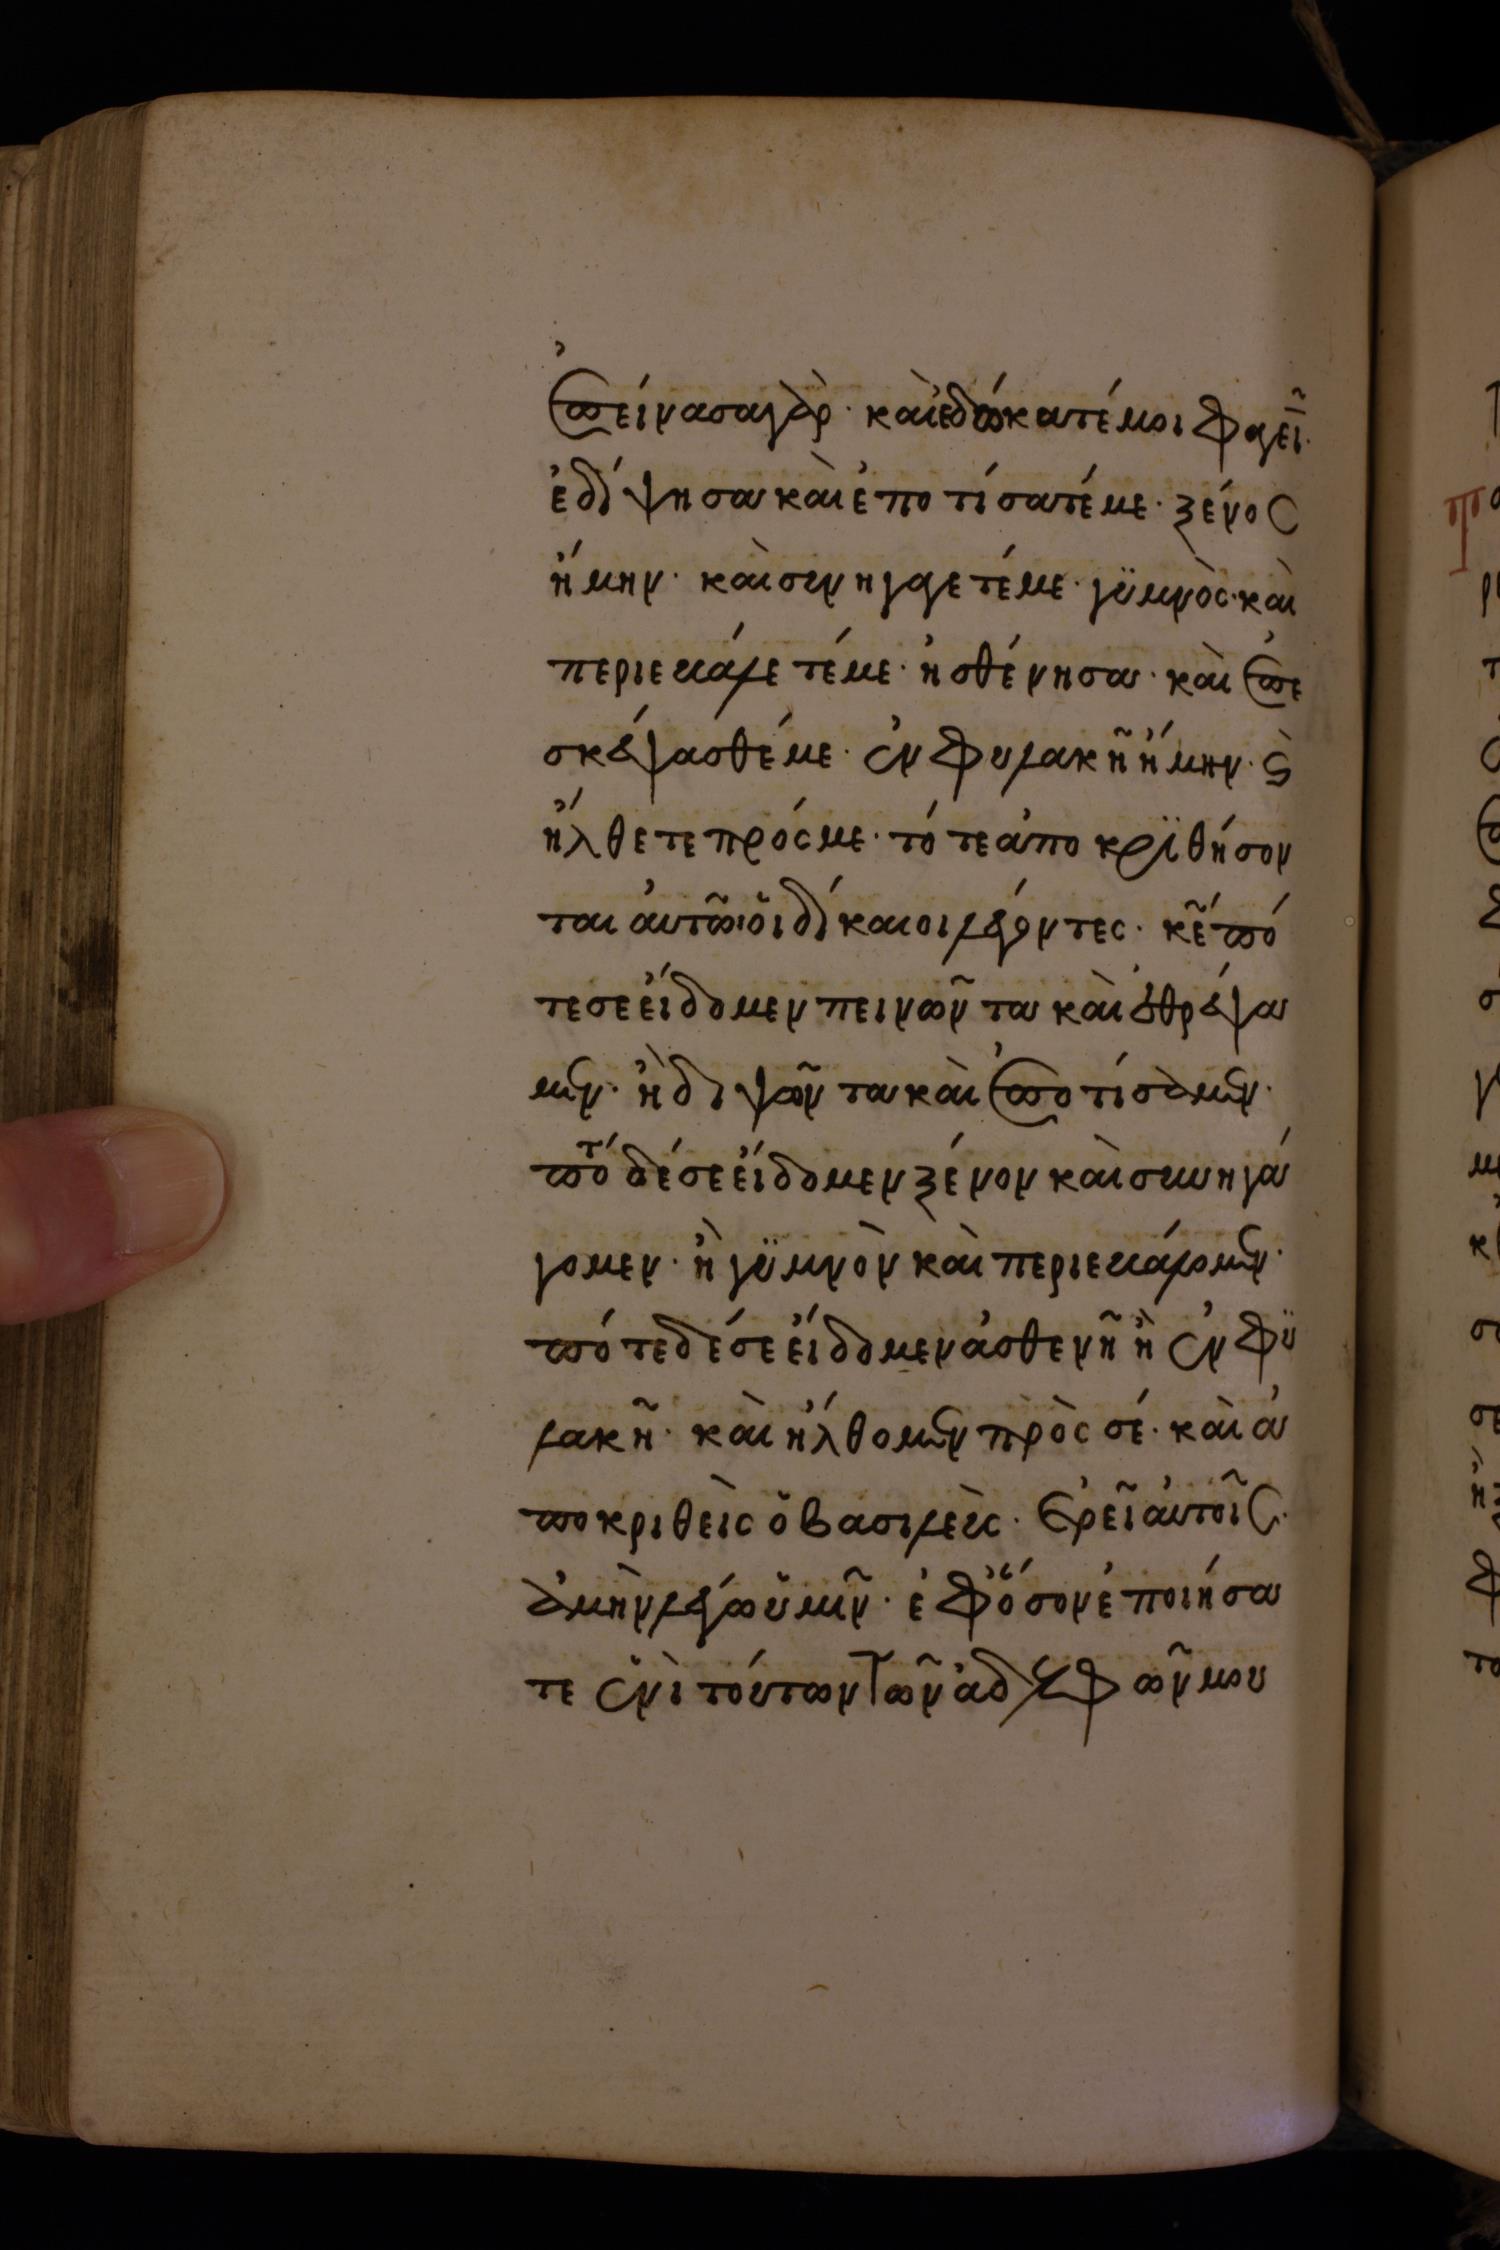 ἐπείνασα γὰρ· καὶ ἐδώκατέ μοι φαγεῖ̄·
ἐδίψησα καὶ ἐποτίσατέ με· ξένος
ἤμην· καὶ συνηγάγετέ με· γϋμνὸς· καὶ
περιεβάλετέ με· ἠσθένησα· καὶ ἐπε
σκέψασθέ με· ἐν φυλακῆ ἤμην· ϗ̀
ἤλθετε πρός με· τότε ἀποκρϊθήσον
ται ἀυτῶ ὁι δίκαιοι λέγοντες· κε̄ πό
τε σε εἴδομεν πεινῶντα καὶ ἐθρέψα
μεν· ἢ διψῶντα καὶ ἐποτίσαμεν·
πότ δέ σε εἴδομεν ξένον καὶ συνηγά
γομεν· ἢ γϋμνὸν καὶ περιεβάλομεν·
πότε δέ σε εἴδομεν ἀσθενῆ ἢ ἐν φϋ
λακῆ· καὶ ἤλθομεν πρὸς σέ· καὶ ἀ
ποκριθεὶς ὁ βασιλεὺς· ἐρεῖ ἀυτοῖς·
ἀμὴν λέγω ὑμῖν· ἐφ' ὅσον ἐποιήσα
τε ἑνὶ τούτων τῶν ἀδελφῶν μου